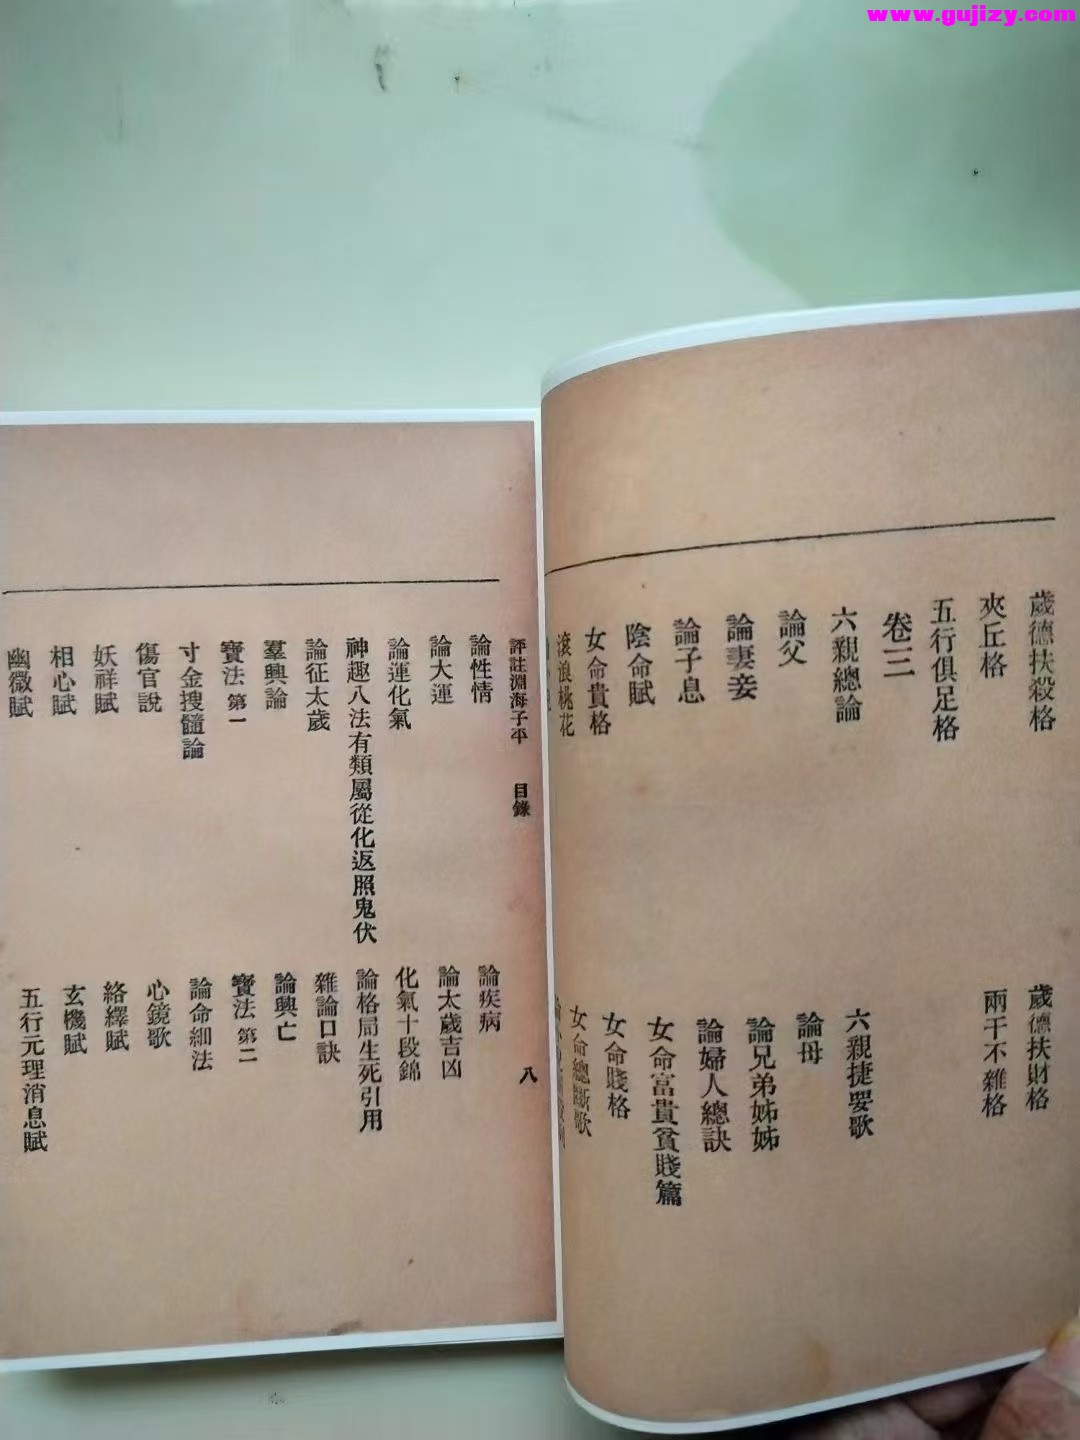 www.gujizy.com
歲德扶殺格
歲德扶財格
夾丘格
兩干不雜格
五行俱足格
卷三
六親總論
六親捷要歌
論父
論母
論妻妾
論兄弟姊姊
論子息
論婦人總訣
陰命賦
女命富貴貧賤篇
女命貴格
女命賤格
滾浪桃花
女命總斷歌
評註淵海子平 目錄 八
論性情
論疾病
論大運
論太歲吉凶
論運化氣
化氣十段錦
神趣八法有類屬從化返照鬼伏
論格局生死引用
論征太歲
雜論口訣
羣興論
論興亡
寶法第一
寶法第二
寸金搜髓論
論命細法
傷官說
心鏡歌
妖祥賦
絡繹賦
相心賦
玄機賦
幽微賦
五行元理消息賦